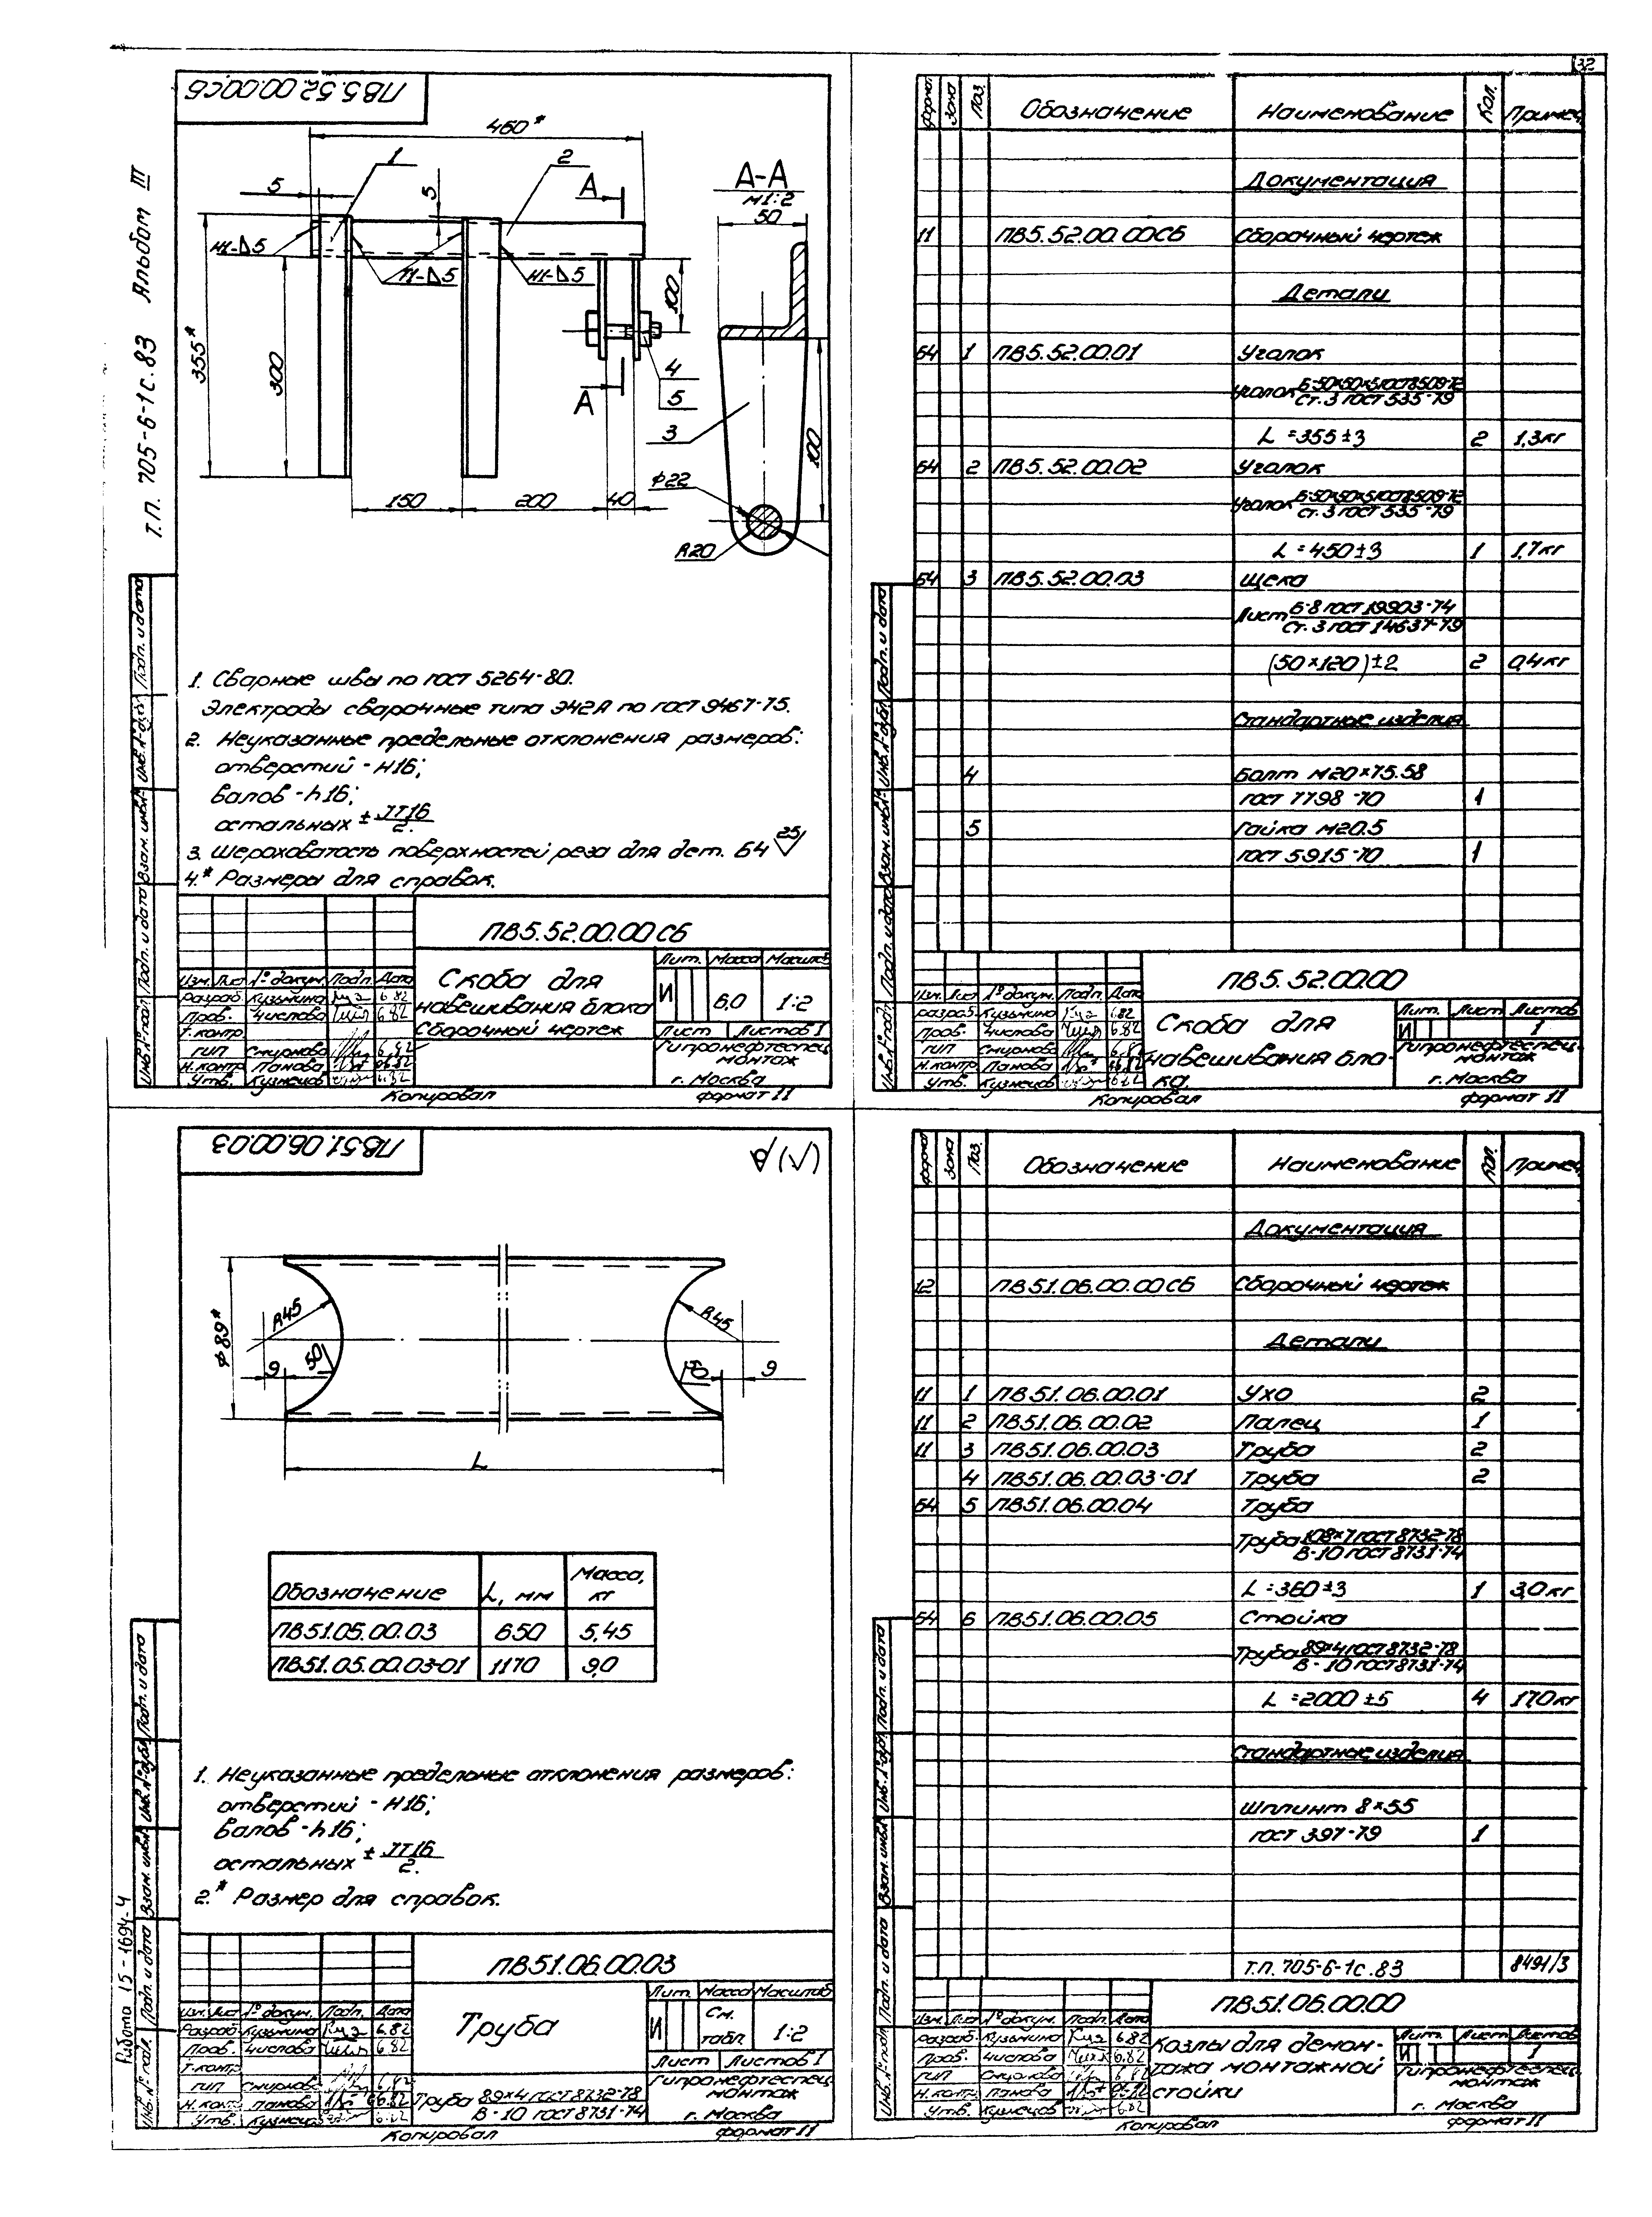 32
Т.П. 705-6-1с.83 Альбом III
ПВ5.52.00.00СБ
460*
1
2
5
5
А
А-А
М1:2
50
Н1-△5
Т1-△5
Н1-△5
355*
300
100
4
5
А
3
100
ϕ22
R20
150
200
40
1. Сварные швы по ГОСТ 5264-80.
Электроды сварочные типа Э42А по ГОСТ 9467-75.
2. Неуказанные предельные отклонения размеров:
отверстий - Н16;
валов - h16;
остальных ± IT16/2.
3. Шероховатость поверхностей реза для дет. БЧ 25
4.* Размеры для справок.
ПВ5.52.00.00СБ
Скоба для
навешивания блока
Сборочный чертеж
Лит. Масса Масштаб
И 6,0 1:2
Лист Листов 1
Гипронефтеспец-
монтаж
г. Москва
Изм. Лист № докум. Подп. Дата
Разраб. Кузьмина 6.82
Пров. Числова 6.82
Т.контр.
ГИП Смирнова 6.82
Н.контр. Панова 06.82
Утв. Кузнецов 6.82
Копировал Формат 11
Инв.№ подл. Подп. и дата Взам. инв.№ Инв.№ дубл. Подп. и дата
Формат Зона Поз. Обозначение Наименование Кол. Примеч.
Документация
11 ПВ5.52.00.00СБ Сборочный чертеж
Детали
БЧ 1 ПВ5.52.00.01 Уголок
Уголок Б-50×50×5 ГОСТ 8509-72
Ст.3 ГОСТ 535-79
L=355±3 2 1,3кг
БЧ 2 ПВ5.52.00.02 Уголок
Уголок Б-50×50×5 ГОСТ 8509-72
Ст.3 ГОСТ 535-79
L=450±3 1 1,7кг
БЧ 3 ПВ5.52.00.03 Щека
Лист Б-8 ГОСТ 19903-74
Ст.3 ГОСТ 14637-79
(50×120)±2 2 0,4кг
Стандартные изделия
4 Болт М20×75.58
ГОСТ 7798-70 1
5 Гайка М20.5
ГОСТ 5915-70 1
ПВ5.52.00.00
Изм. Лист № докум. Подп. Дата
Разраб. Кузьмина 6.82
Пров. Числова 6.82
ГИП Смирнова 6.82
Н.контр. Панова 06.82
Утв. Кузнецов 6.82
Скоба для
навешивания бло-
ка
Лит. Лист Листов
И 1
Гипронефтеспец-
монтаж
г. Москва
Копировал Формат 11
Инв.№ подл. Подп. и дата Взам. инв.№ Инв.№ дубл. Подп. и дата
ПВ51.06.00.03
(√)
ϕ89*
R45
R45
50
50
9
9
L
Обозначение L, мм Масса, кг
ПВ51.05.00.03 650 5,45
ПВ51.05.00.03-01 1170 9,0
1. Неуказанные предельные отклонения размеров:
отверстий - Н16;
валов - h16;
остальных ± IT16/2.
2.* Размер для справок.
Работа 15-1694-4
ПВ51.06.00.03
Труба
Лит. Масса Масштаб
И См. табл. 1:2
Лист Листов 1
Труба 89×4 ГОСТ 8732-78
В-10 ГОСТ 8731-74
Гипронефтеспец-
монтаж
г. Москва
Изм. Лист № докум. Подп. Дата
Разраб. Кузьмина 6.82
Пров. Числова 6.82
Т.контр.
ГИП Смирнова 6.82
Н.контр. Панова 06.82
Утв. Кузнецов 6.82
Копировал Формат 11
Инв.№ подл. Подп. и дата Взам. инв.№ Инв.№ дубл. Подп. и дата
Формат Зона Поз. Обозначение Наименование Кол. Примеч.
Документация
12 ПВ51.06.00.00СБ Сборочный чертеж
Детали
11 1 ПВ51.06.00.01 Ухо 2
11 2 ПВ51.06.00.02 Палец 1
11 3 ПВ51.06.00.03 Труба 2
4 ПВ51.06.00.03-01 Труба 2
БЧ 5 ПВ51.06.00.04 Труба
Труба 108×7 ГОСТ 8732-78
В-10 ГОСТ 8731-74
L=360±3 1 3,0кг
БЧ 6 ПВ51.06.00.05 Стойка
Труба 89×4 ГОСТ 8732-78
В-10 ГОСТ 8731-74
L=2000±5 4 17,0кг
Стандартные изделия
Шплинт 8×55
ГОСТ 397-79 1
Т.П. 705-6-1с.83 8491/3
ПВ51.06.00.00
Изм. Лист № докум. Подп. Дата
Разраб. Кузьмина 6.82
Пров. Числова 6.82
ГИП Смирнова 6.82
Н.контр. Панова 06.82
Утв. Кузнецов 6.82
Козлы для демон-
тажа монтажной
стойки
Лит. Лист Листов
И 1
Гипронефтеспец-
монтаж
г. Москва
Копировал Формат 11
Инв.№ подл. Подп. и дата Взам. инв.№ Инв.№ дубл. Подп. и дата